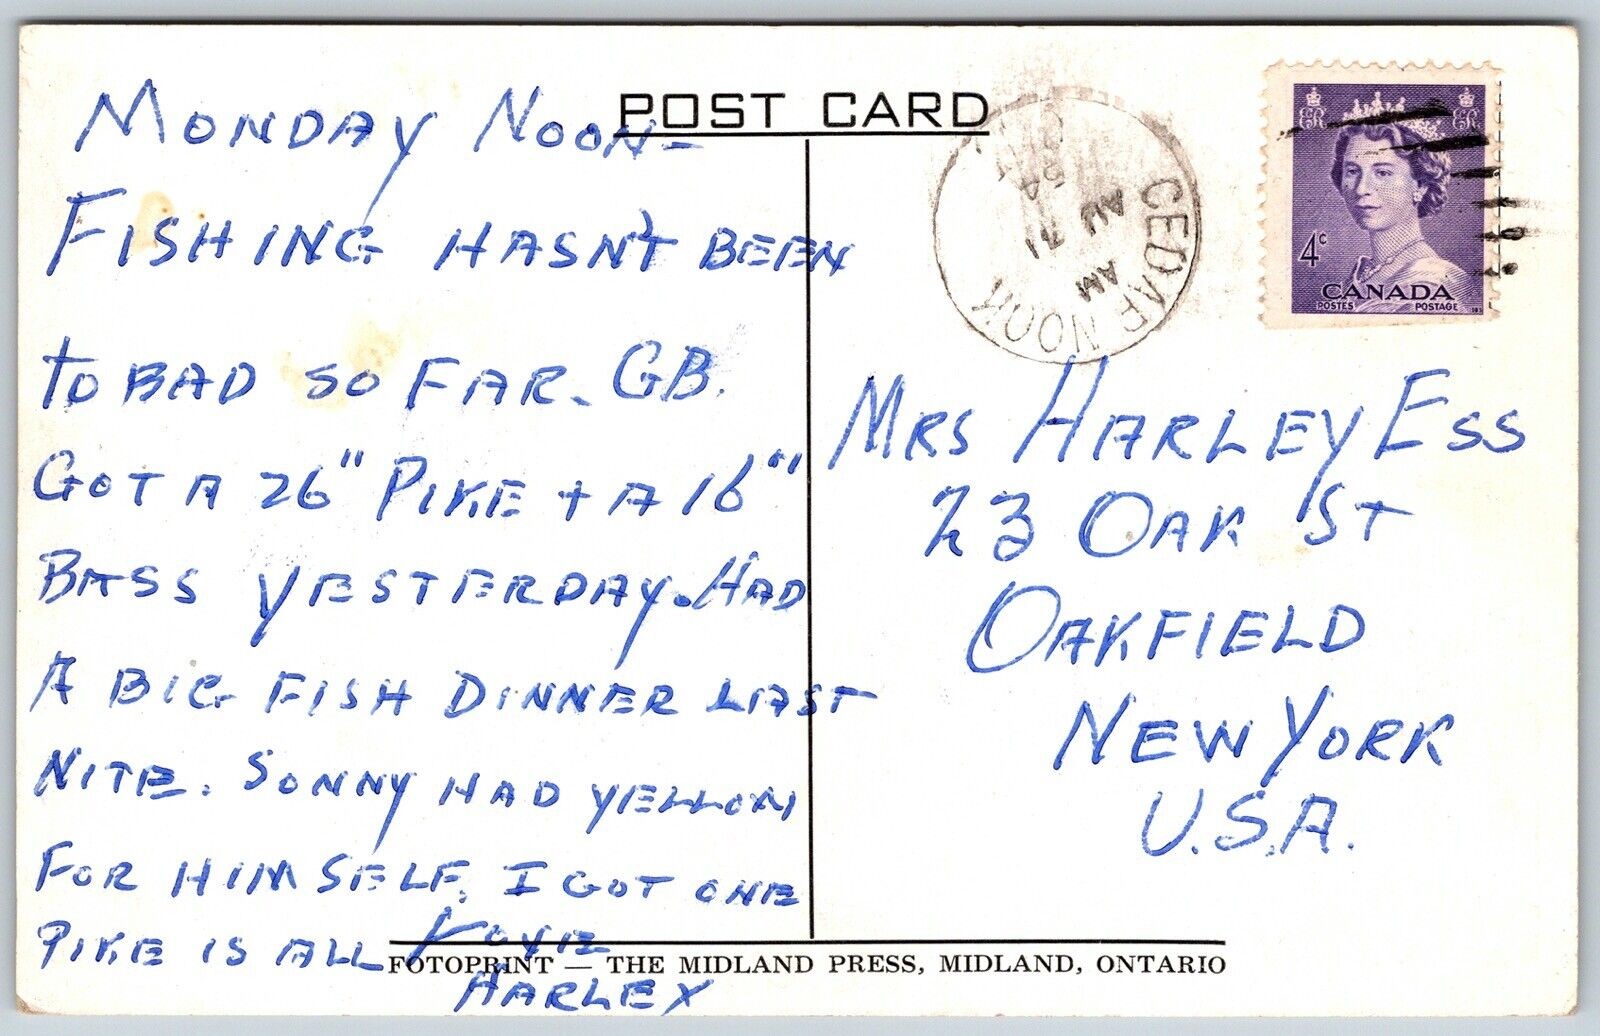 POST CARD
MONDAY NOON-
FISHING HASN'T BEEN
TO BAD SO FAR. GB.
GOT A 26" PIKE + A 16"
BASS YESTERDAY. HAD
A BIG FISH DINNER LAST
NITE. SONNY HAD YELLOW
FOR HIMSELF. I GOT ONE
PIKE IS ALL LOVE
HARLEY
CEDAR NOOK
AM
AU
54
ER
ER
4c
CANADA
POSTES POSTAGE
MRS HARLEY ESS
23 OAK ST
OAKFIELD
NEW YORK
U.S.A.
FOTOPRINT — THE MIDLAND PRESS, MIDLAND, ONTARIO